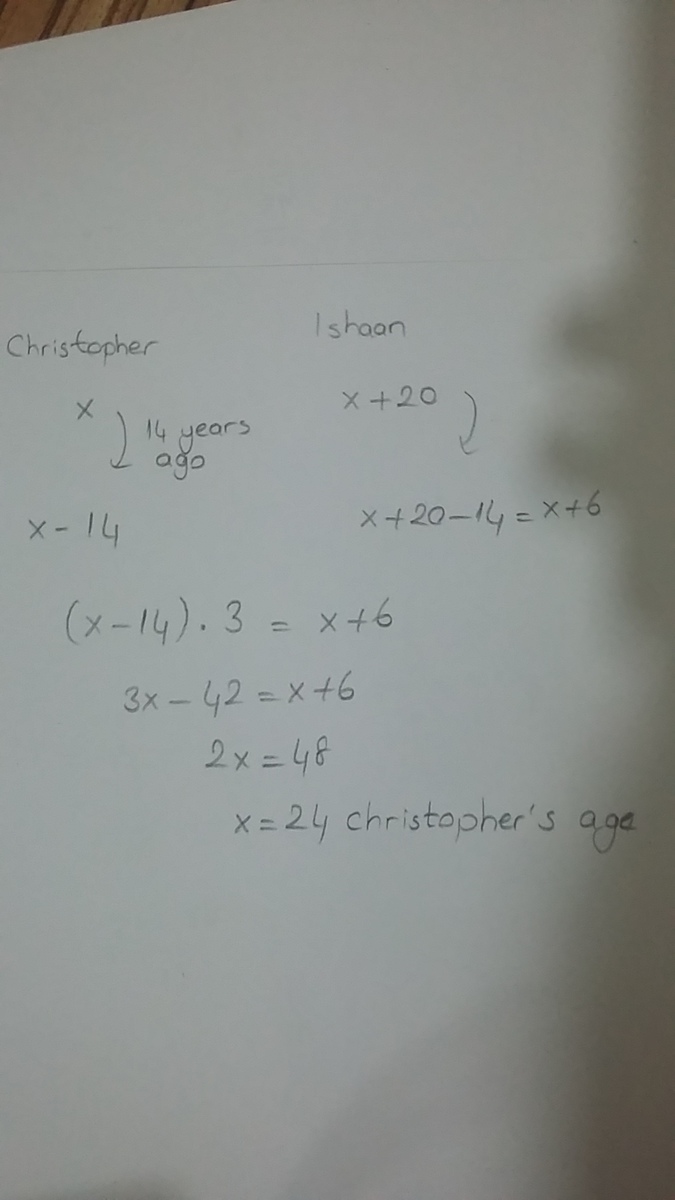 Christopher Ishaan
x x+20
14 years
ago
x-14 x+20-14=x+6
(x-14).3 = x+6
3x-42=x+6
2x=48
x=24 christopher's age